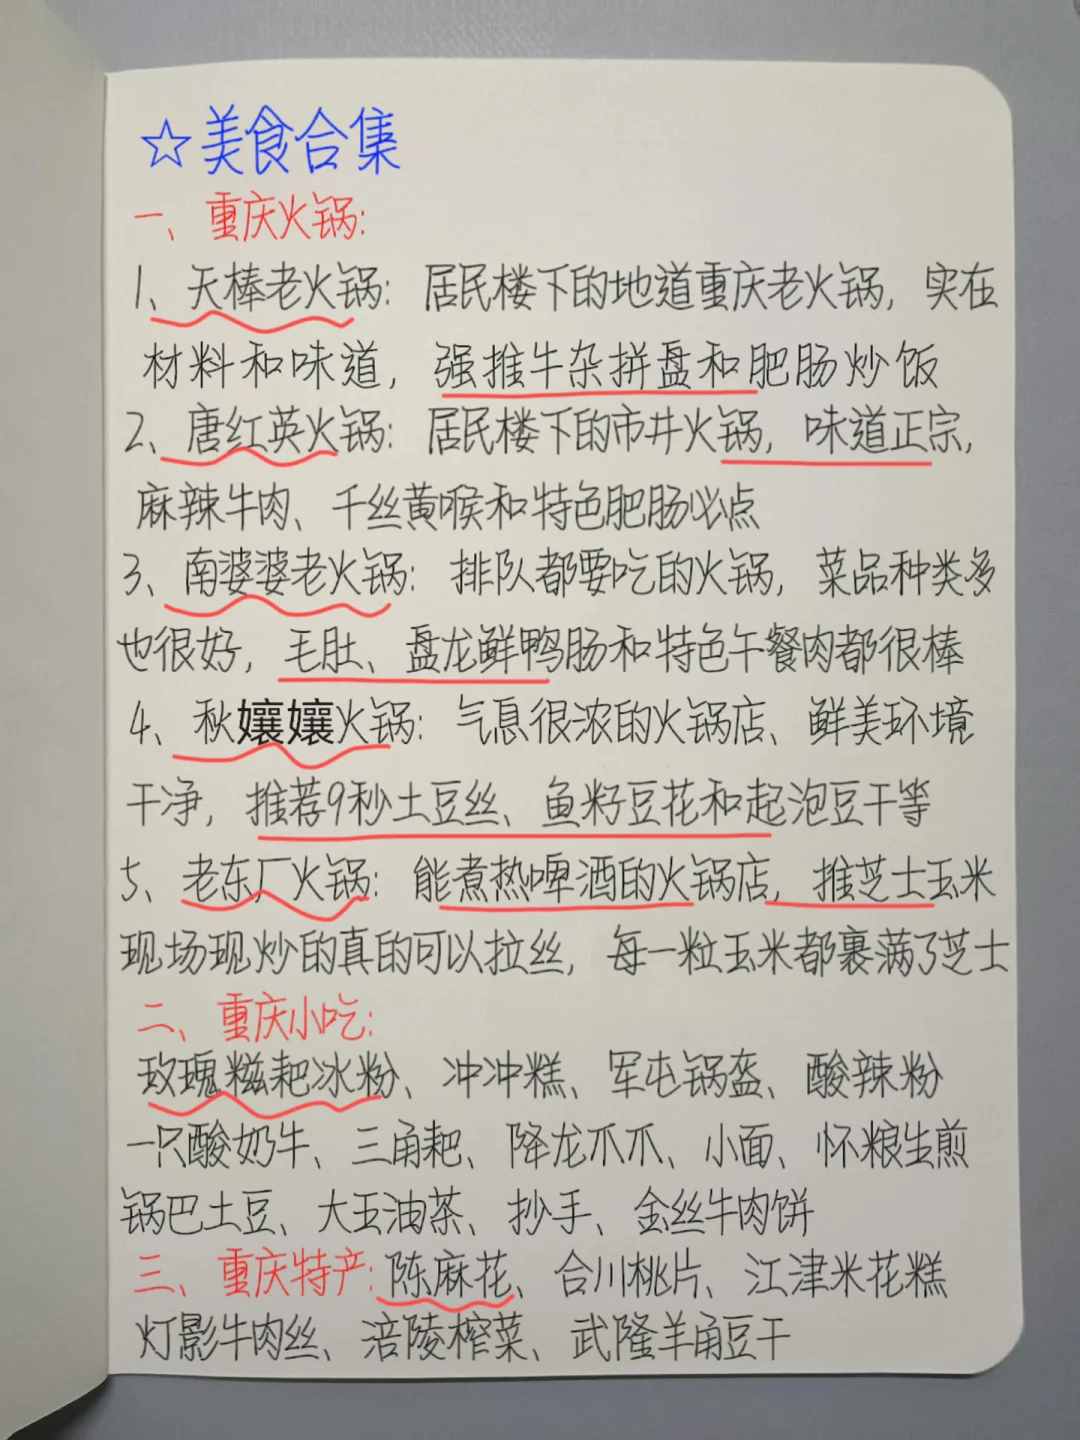 ☆美食合集
一、重庆火锅:
1、天棒老火锅:居民楼下的地道重庆老火锅,实在
材料和味道,强推牛杂拼盘和肥肠炒饭
2、唐红英火锅:居民楼下的市井火锅,味道正宗,
麻辣牛肉、千丝黄喉和特色肥肠必点
3、南婆婆老火锅:排队都要吃的火锅,菜品种类多
也很好,毛肚、盘龙鲜鸭肠和特色午餐肉都很棒
4、秋孃孃火锅:气息很浓的火锅店、鲜美环境
干净,推荐9秒土豆丝、鱼籽豆花和起泡豆干等
5、老东厂火锅:能煮热啤酒的火锅店,推芝士玉米
现场现炒的真的可以拉丝,每一粒玉米都裹满了芝士
二、重庆小吃:
玫瑰糍粑冰粉、冲冲糕、军屯锅盔、酸辣粉
一只酸奶牛、三角粑、降龙爪爪、小面、怀粮生煎
锅巴土豆、大玉油茶、抄手、金丝牛肉饼
三、重庆特产:陈麻花、合川桃片、江津米花糕
灯影牛肉丝、涪陵榨菜、武隆羊角豆干